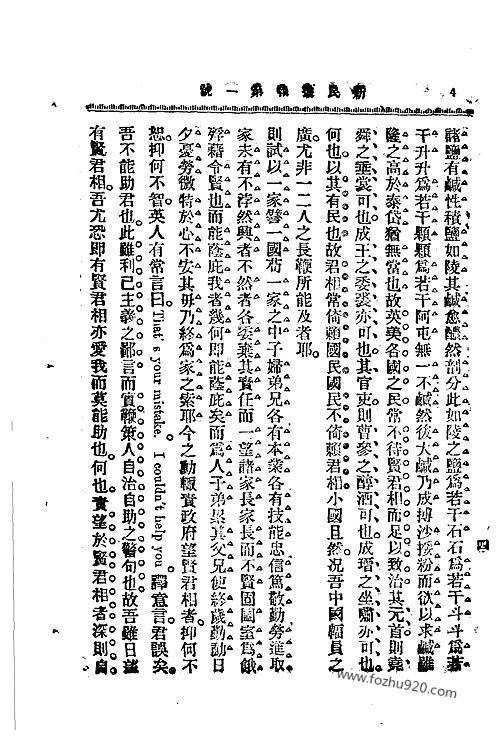 新民叢報第一號
4
四
諸鹽有鹹性積鹽如陵其鹹愈醲然剖分此如陵之鹽爲若干石石爲若干斗斗爲若
干升升爲若干顆顆爲若干阿屯無一不鹹然後大鹹乃成搏沙挼粉而欲以求鹹雖
隆之高於泰岱猶無當也故英美各國之民常不待賢君相而足以致治其元首則堯
舜之垂裳可也成王之委裘亦可也其官吏則曹參之醇酒可也成瑨之坐嘯亦可也
何也以其有民也故君相常倚賴國民國民不倚賴君相小國且然况吾中國幅員之
廣尤非一二人之長鞭所能及者耶。
則試以一家譬一國苟一家之中子婦弟兄各有本業各有技能忠信篤敬勤勞進取
家未有不浡然興者不然者各委棄其責任而一望諸家長家長而不賢固闔室爲餓
殍藉令賢也而能蔭庇我者幾何即能蔭庇矣而爲人子弟累其父兄使終歲勤動日
夕憂勞微特於心不安其毋乃終爲家之索耶今之動輒責政府望賢君相者抑何不
恕抑何不智英人有常言曰That's your mistake. I couldn't help you.譯意言君誤矣。
吾不能助君也此雖利己主義之鄙言而實鞭策人自治自助之警句也故吾雖日望
有賢君相。吾尤恐即有賢君相亦愛我而莫能助也。何也。責望於賢君相者深則自
www.fozhu920.com